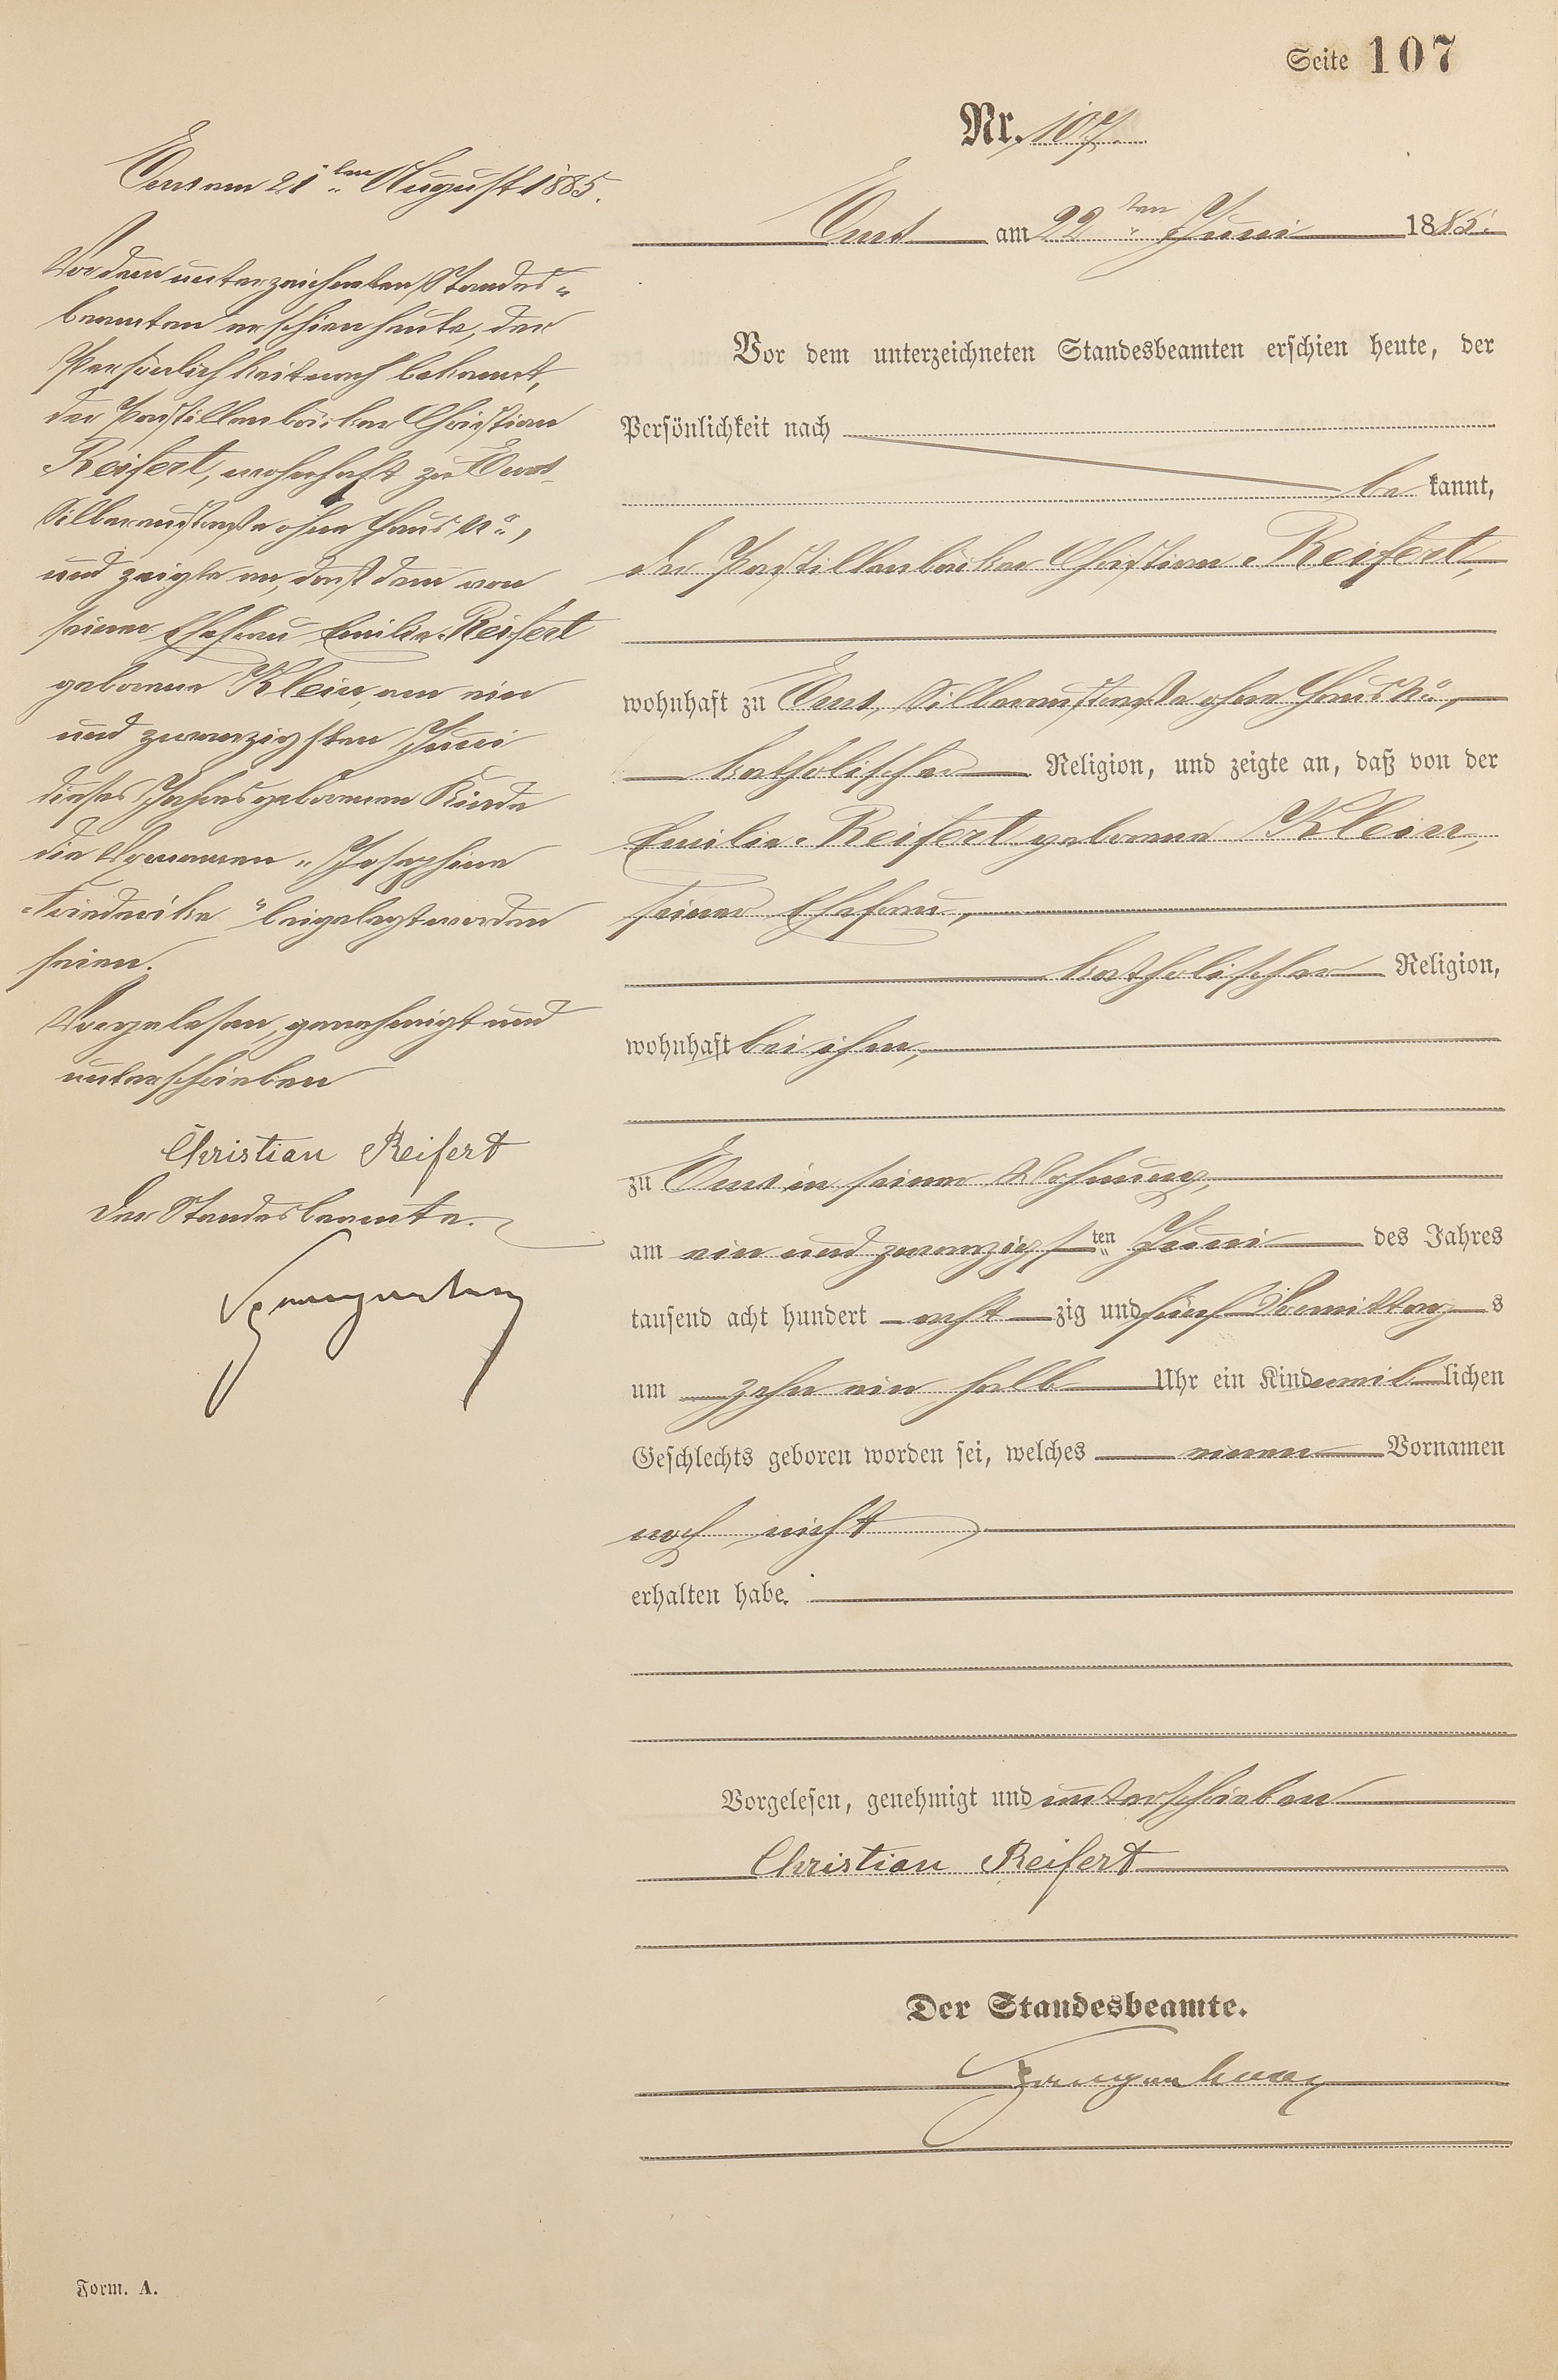 Seite 107
Nr. 107.
Ems am 22ten Juni 1885.
Vor dem unterzeichneten Standesbeamten erschien heute, der
Persönlichkeit nach
be kannt,
der Pastillenbäcker Christian Reifert,
wohnhaft zu Ems, Silberaustraße ohne Haus No.,
katholischer Religion, und zeigte an, daß von der
Emilie Reifert geborene Klein,
seiner Ehefrau,
katholischer Religion,
wohnhaft bei ihm,
zu Ems in seiner Wohnung,
am ein und zwanzigsten Juni des Jahres
tausend acht hundert acht zig und fünf Vormittag s
um zehn ein halb Uhr ein Kind weib lichen
Geschlechts geboren worden sei, welches einen Vornamen
noch nicht
erhalten habe.
Vorgelesen, genehmigt und unterschrieben
Christian Reifert
Der Standesbeamte.
Ems am 21ten August 1885.
Vor dem unterzeichneten Standes-
beamten erschien heute, der
Persönlichkeit nach bekannt,
der Pastillenbäcker Christian
Reifert, wohnhaft zu Ems
Silberaustraße ohne Haus No.,
und zeigte an, daß dem von
seiner Ehefrau Emilie Reifert
geborene Klein, am ein
und zwanzigsten Juni
dieses Jahres geborenen Kinde
die Vornamen „Josephine
Friederike" beigelegt worden
seien.
Vorgelesen, genehmigt und
unterschrieben
Christian Reifert
Der Standesbeamte.
Form. A.